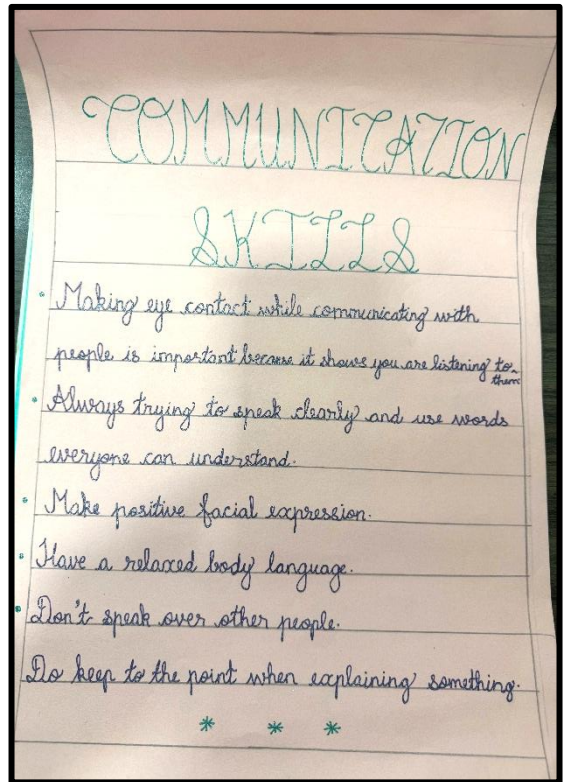 COMMUNICATION
SKILLS
• Making eye contact while communicating with
people is important because it shows you are listening to them
• Always trying to speak clearly and use words
everyone can understand.
• Make positive facial expression.
• Have a relaxed body language.
• Don't speak over other people.
Do keep to the point when explaining something.
* * *